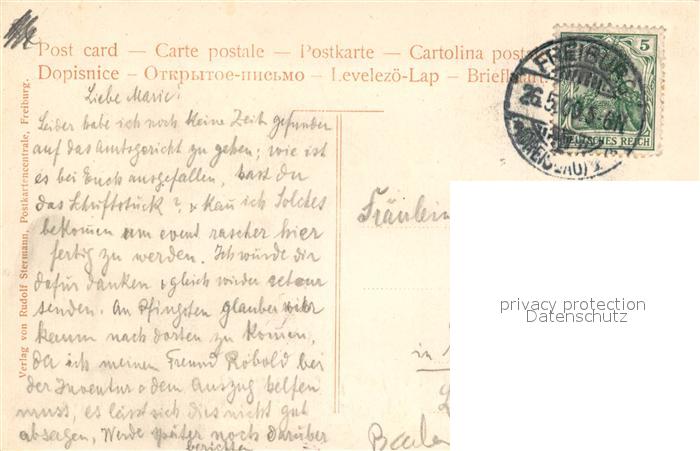 Post card — Carte postale — Postkarte — Cartolina posta
Dopisnice — Открытое-письмо — Levelezö-Lap — Briefkaart
5
DEUTSCHES REICH
FREIBURG
26.5.
(BREISGAU)
Verlag von Rudolf Stermann, Postkartencentrale, Freiburg.
Liebe Marie!
Leider habe ich noch keine Zeit gefunden
auf das Amtsgericht zu gehen; wie ist
es bei Euch ausgefallen, hast du
das Schriftstück? & kan ich Solches
bekomen um event rascher hier
fertig zu werden. Ich würde dir
dafür danken & gleich wieder retour
senden. An Pfingsten glauben wir
kaum nach dorten zu komen,
da ich meinen Freund Robold bei
der Inventur & dem Auszug helfen
muss, es lässt sich dies nicht gut
absagen, Werde später noch darüber
berichten
Fräulein
in
Baden
privacy protection
Datenschutz